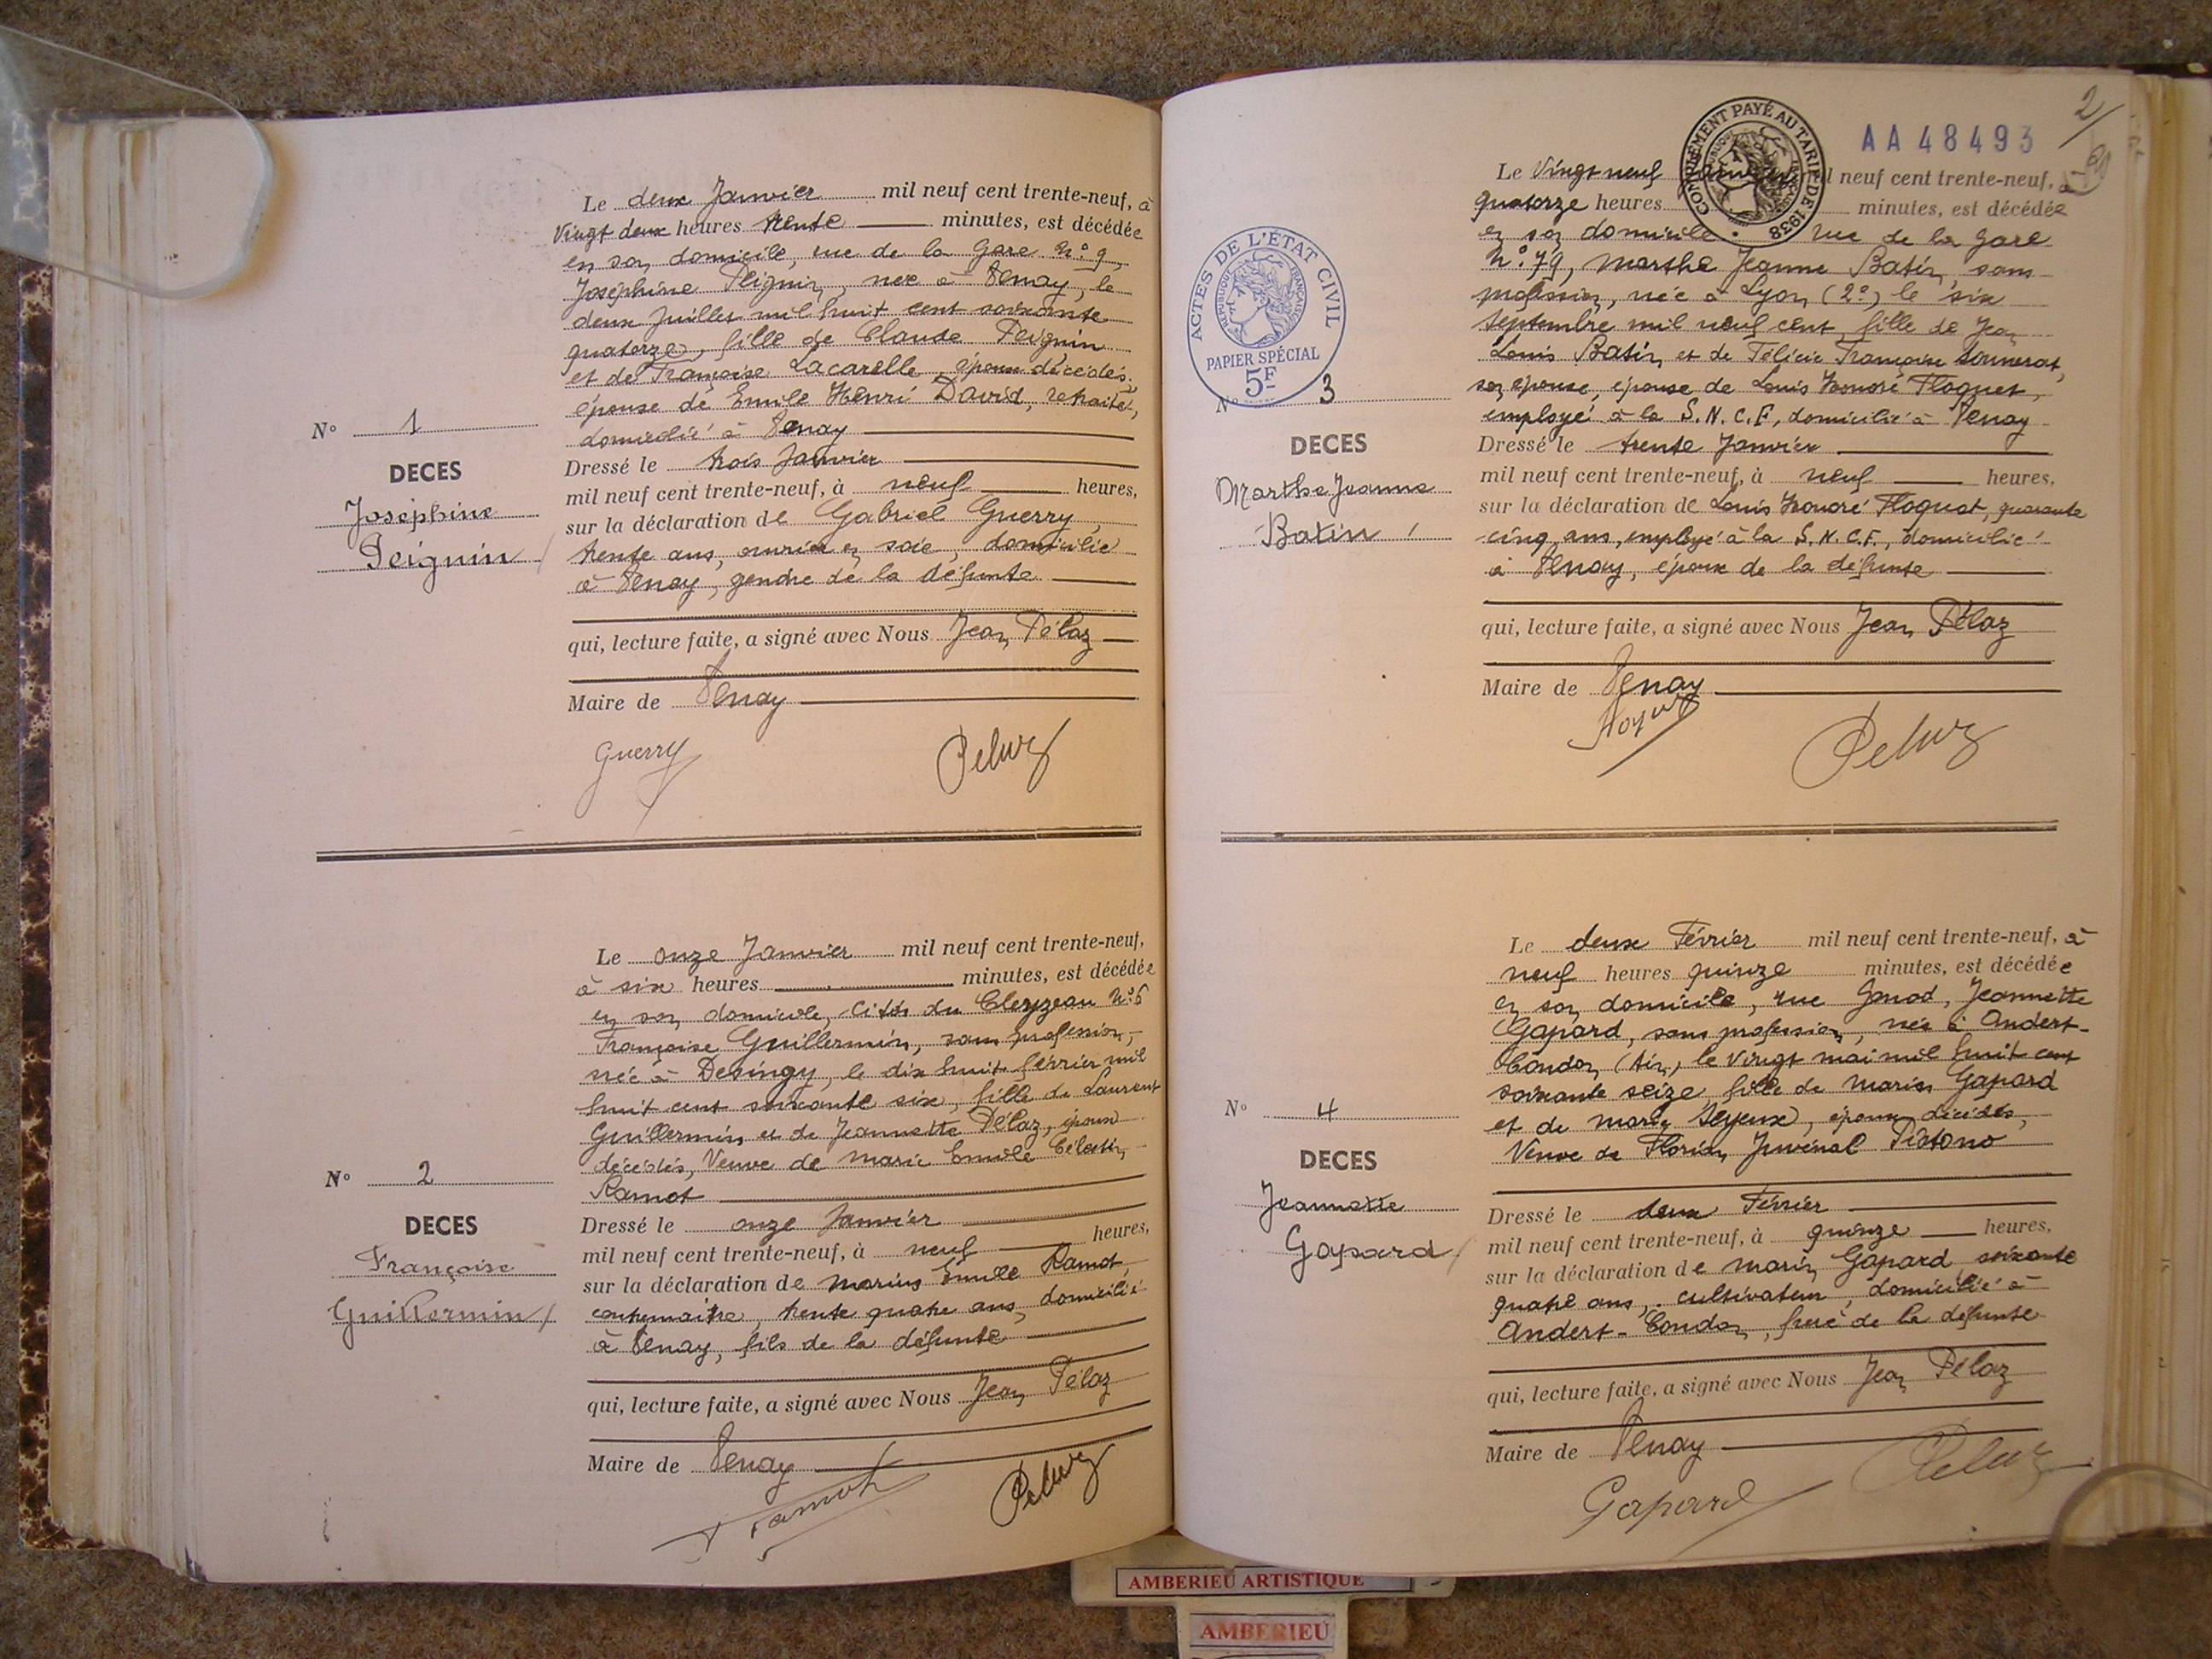 Le deux Janvier mil neuf cent trente-neuf, à
Vingt deux heures trente minutes, est décédée
en son domicile, rue de la Gare N° 9,
Joséphine Peignin, née à Tenay, le
deux Juillet mil huit cent soixante
quatorze, fille de Claude Peignin
et de Françoise Lacarelle, époux décédés,
épouse de Emile Henri David, retraité,
domicilié à Tenay
N° 1
DECES
Joséphine
Peignin
Dressé le trois Janvier
mil neuf cent trente-neuf, à neuf heures,
sur la déclaration de Gabriel Guerry,
trente ans, ouvrier en soie, domicilié
à Tenay, gendre de la défunte
qui, lecture faite, a signé avec Nous Jean Pélaz
Maire de Tenay
Guerry Pelaz
Le onze Janvier mil neuf cent trente-neuf,
à six heures minutes, est décédée
en son domicile, Cités du Cleyzeau N° 6
Françoise Guillermin, sans profession,
née à Desingy, le dix huit février mil
huit cent soixante six, fille de Laurent
Guillermin et de Jeannette Pélaz, époux
décédés, Veuve de Marie Emile Célestin
Ramot
N° 2
DECES
Françoise
Guillermin
Dressé le onze Janvier
mil neuf cent trente-neuf, à neuf heures,
sur la déclaration de Marius Emile Ramot,
contremaître, trente quatre ans, domicilié
à Tenay, fils de la défunte
qui, lecture faite, a signé avec Nous Jean Pélaz
Maire de Tenay
Ramot Pelaz
2
AA 48493
COMPLÉMENT PAYÉ AU TARIF DE 1938
Le Vingt neuf Janvier mil neuf cent trente-neuf, à
quatorze heures minutes, est décédée
en son domicile rue de la Gare
N° 79, Marthe Jeanne Batin, sans
profession, née à Lyon (2e) le six
Septembre mil neuf cent, fille de Jean
Louis Batin et de Félicie Françoise Sonnerat,
son épouse, épouse de Louis Honoré Floquet,
employé à la S.N.C.F, domicilié à Tenay
ACTES DE L'ÉTAT CIVIL
RÉPUBLIQUE FRANÇAISE
PAPIER SPÉCIAL
5F
N° 3
DECES
Marthe Jeanne
Batin
Dressé le trente Janvier
mil neuf cent trente-neuf, à neuf heures,
sur la déclaration de Louis Honoré Floquet, quarante
cinq ans, employé à la S.N.C.F., domicilié
à Tenay, époux de la défunte
qui, lecture faite, a signé avec Nous Jean Pélaz
Maire de Tenay
Pelaz
Le deux Février mil neuf cent trente-neuf, à
neuf heures quinze minutes, est décédée
en son domicile, rue Genod, Jeannette
Gapard, sans profession, née à Andert-
Condon (Ain), le Vingt mai mil huit cent
soixante seize fille de Marin Gapard
et de Marie Seyeux, époux décédés,
Veuve de Florian Juvénal Pistono
N° 4
DECES
Jeannette
Gapard
Dressé le deux Février
mil neuf cent trente-neuf, à quinze heures,
sur la déclaration de Marin Gapard soixante
quatre ans, cultivateur, domicilié à
Andert-Condon, frère de la défunte
qui, lecture faite, a signé avec Nous Jean Pélaz
Maire de Tenay
Gapard Pelaz
AMBERIEU ARTISTIQUE
AMBERIEU